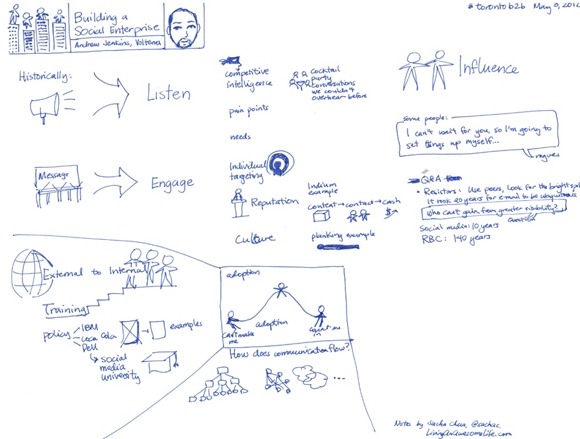 #torontob2b May 9, 2012
Building a
Social Enterprise
Andrew Jenkins, Volterra
Historically:
Listen
competitive
intelligence
pain points
needs
Cocktail
party
conversations
we couldn't
overhear before
Message
Engage
Individual
targeting
Reputation
Indium
example
content → contact → cash
Culture
planking example
Influence
some people:
I can't wait for you, so I'm going to
set things up myself...
rogues
Q&A
• Resistors: Use peers, Look for the bright spot
It took 20 years for e-mail to be ubiquitous
Who can't gain from greater visibility?
Social media: 10 years
RBC: 140 years
External to Internal
Training
policy
IBM
Coca Cola
Dell
examples
social
media
university
adoption
adoption
can't make
me
count me
How does communication flow?
...
Notes by Sacha Chua, @sachac
LivingAnAwesomeLife.com